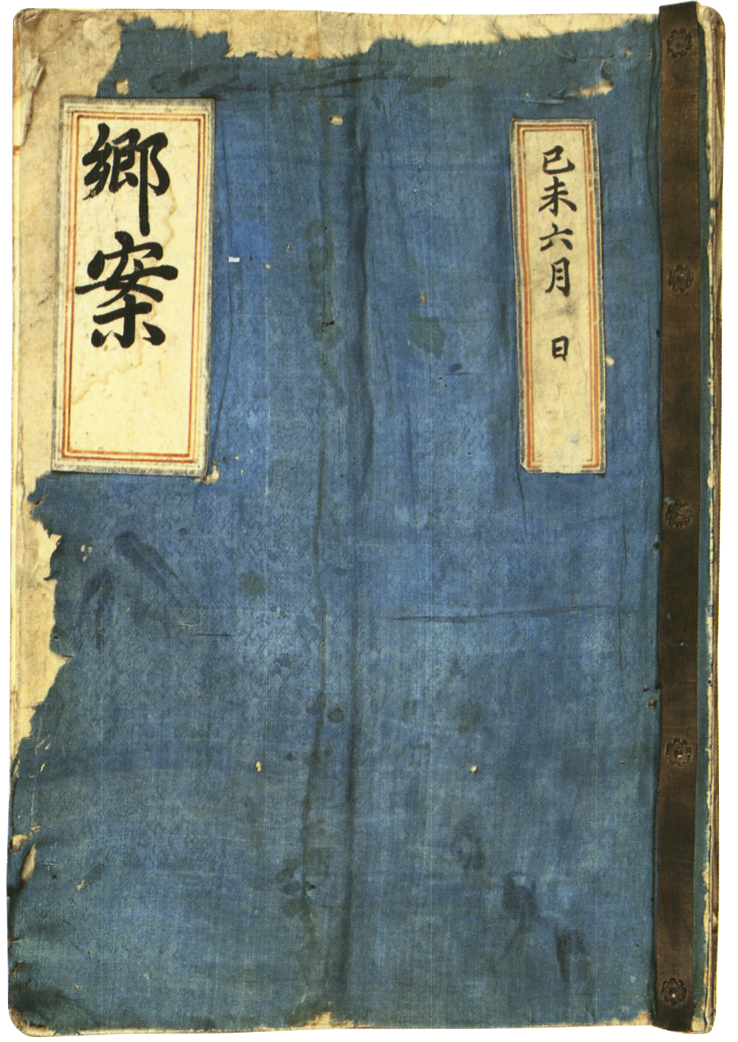 己未六月 日
鄕案